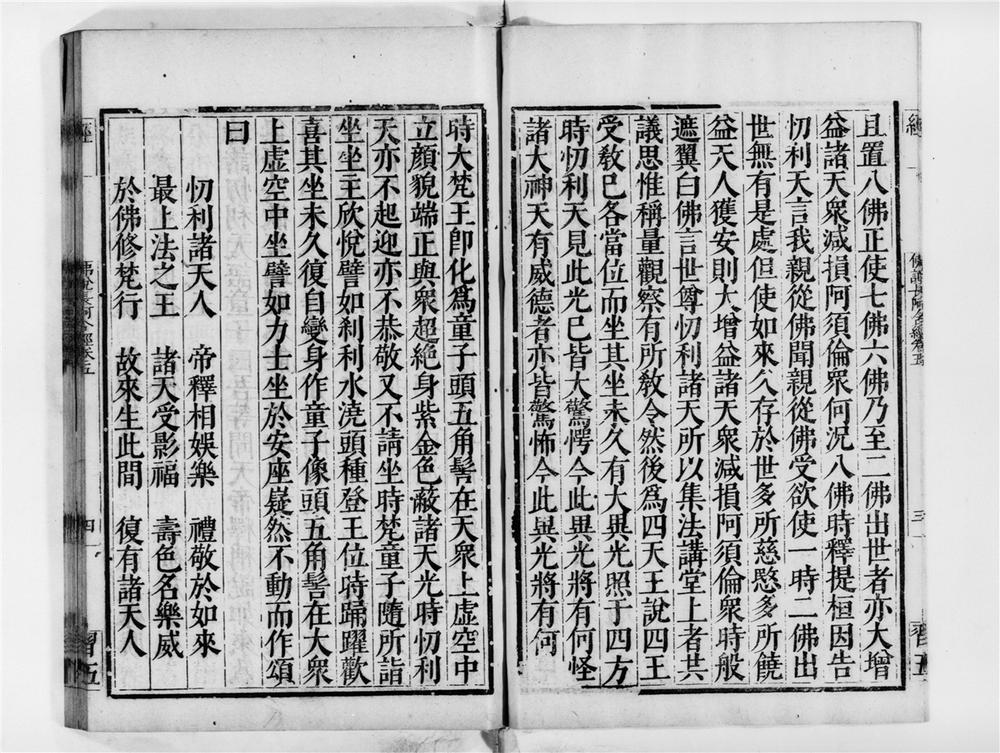 且置八佛正使七佛六佛乃至二佛出世者亦大增
益諸天衆減損阿須倫衆何況八佛時釋提桓因告
忉利天言我親從佛聞親從佛受欲使一時二佛出
世無有是處但使如來久存於世多所慈愍多所饒
益天人獲安則大增益諸天衆減損阿須倫衆時般
遮翼白佛言世尊忉利諸天所以集法講堂上者共
議思惟稱量觀察有所教令然後爲四天王說四王
受教已各當位而坐其坐未久有大異光照于四方
時忉利天見此光已皆大驚愕今此異光將有何怪
諸大神天有威德者亦皆驚怖今此異光將有何
時大梵王卽化爲童子頭五角髻在天衆上虛空中
立顏貌端正與衆超絕身紫金色蔽諸天光時忉利
天亦不起迎亦不恭敬又不請坐時梵童子隨所詣
坐坐生欣悅譬如刹利水澆頭種登王位時踊躍歡
喜其坐未久復自變身作童子像頭五角髻在大衆
上虛空中坐譬如力士坐於安座嶷然不動而作頌
曰
忉利諸天人　帝釋相娛樂　禮敬於如來
最上法之王　諸天受影福　壽色名樂威
於佛修梵行　故來生此間　復有諸天人
四
習五